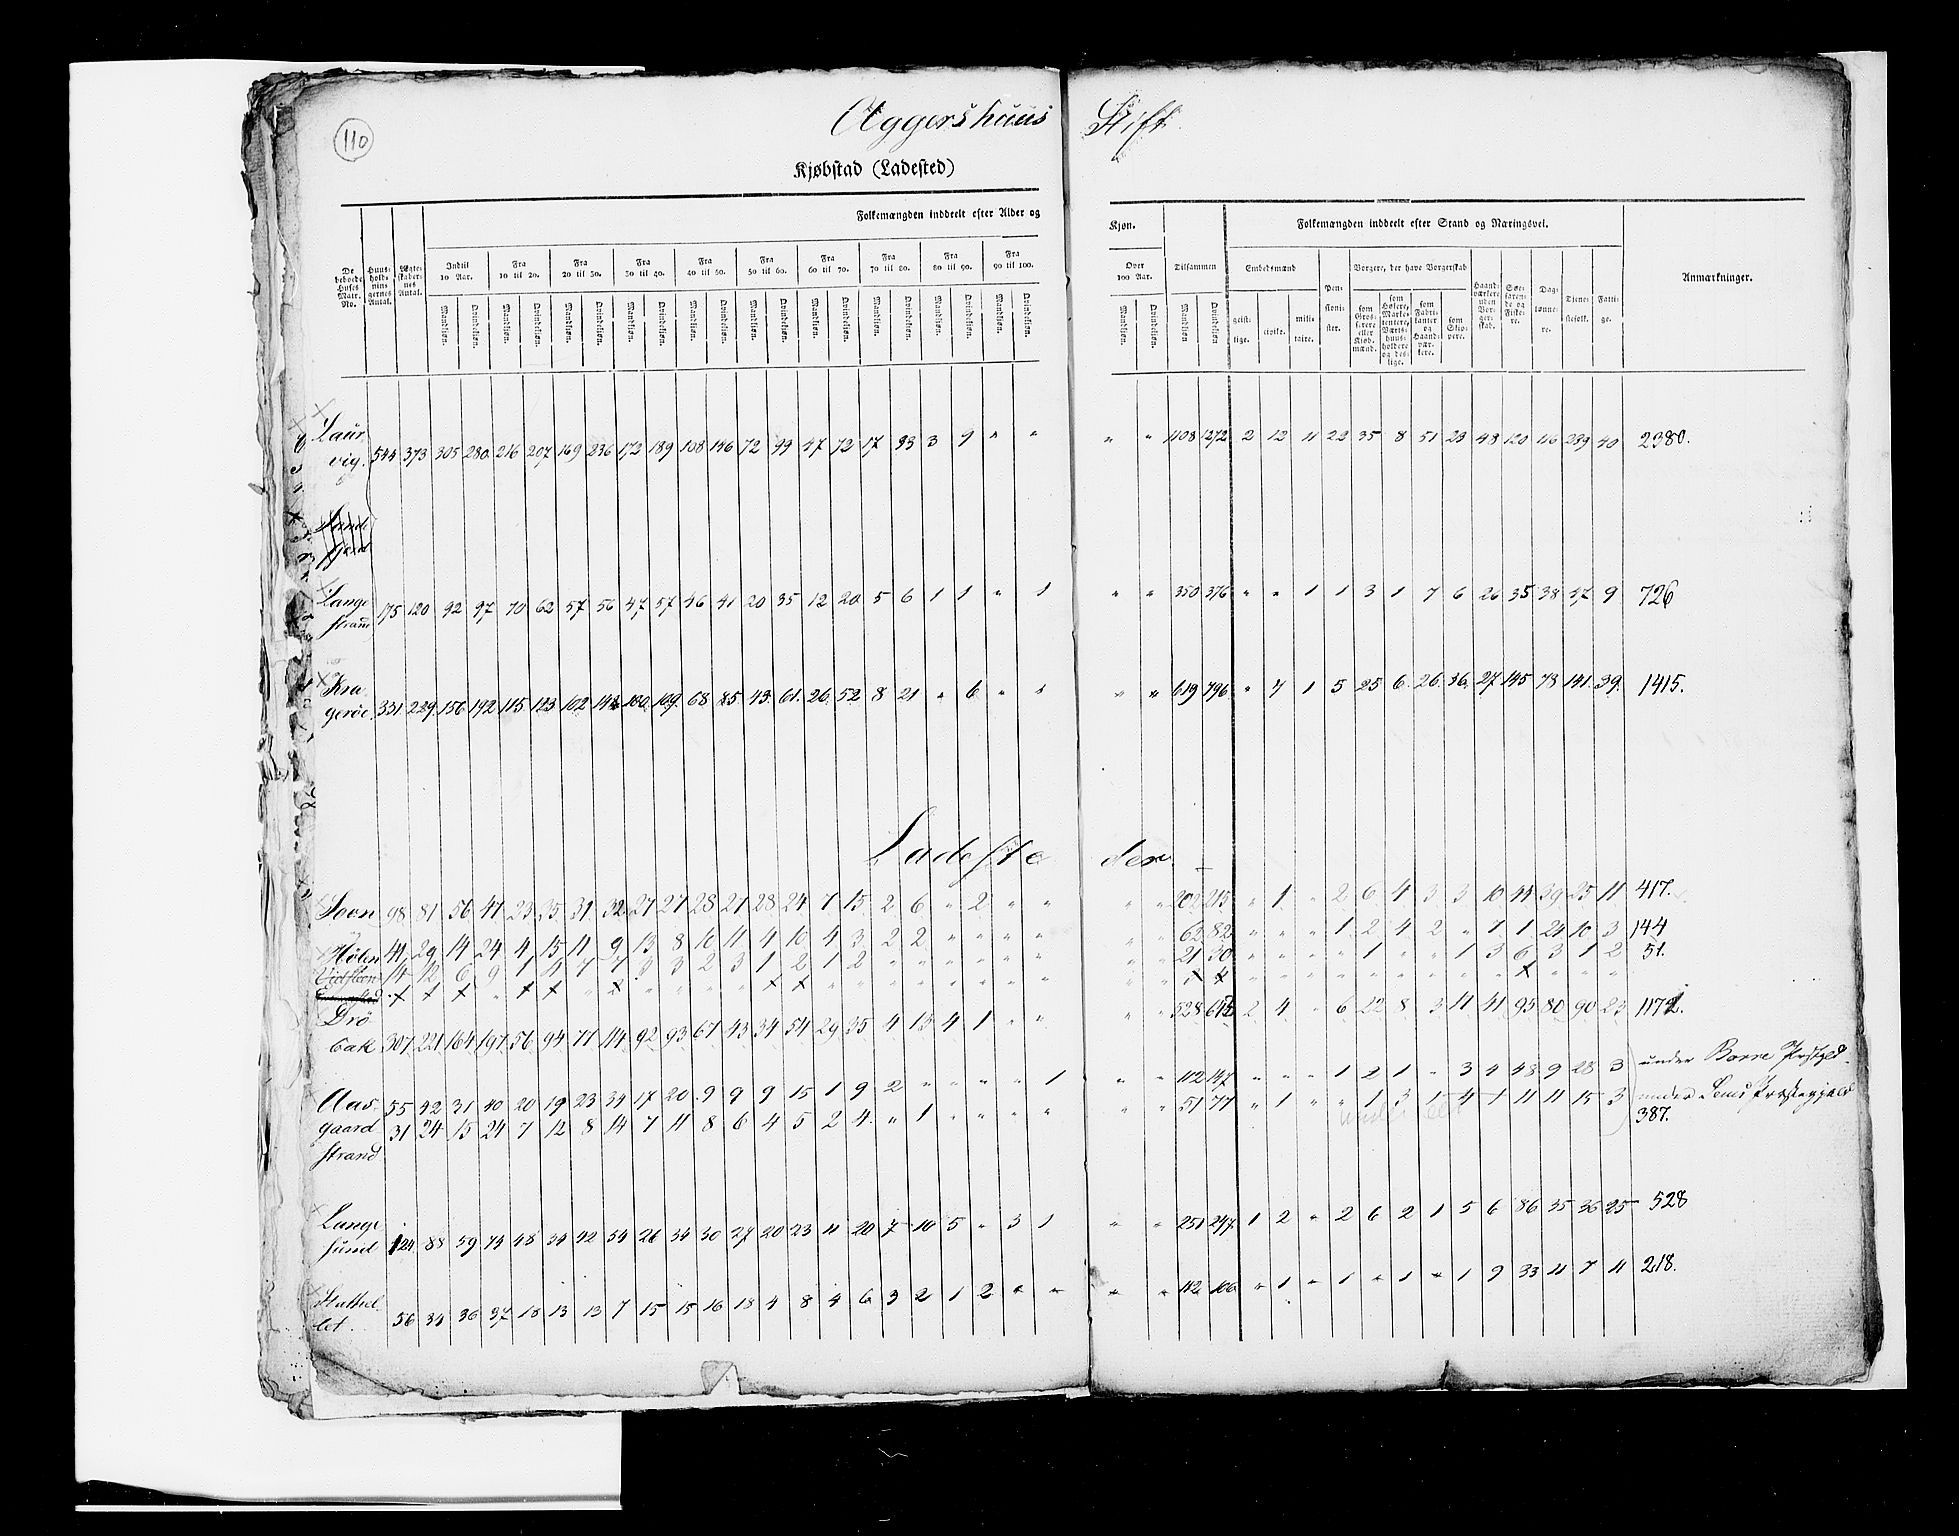 110
Aggershuus Stift.
Kjøbstad (Ladested)
Folkemængden inddeelt efter Alder og Kjøn.
Folkemængden inddeelt efter Stand og Næringsvei.
De beboede Huses Matr. No.
Huus-holdningernes Antal.
Ægteskabernes Antal.
Indtil 10 Aar.
Fra 10 til 20.
Fra 20 til 30.
Fra 30 til 40.
Fra 40 til 50.
Fra 50 til 60.
Fra 60 til 70.
Fra 70 til 80.
Fra 80 til 90.
Fra 90 til 100.
Over 100 Aar.
Tilsammen
Embedsmænd
Borgere, der have Borgerskab
Mandkjøn. Qvindekjøn. Mandkjøn. Qvindekjøn. Mandkjøn. Qvindekjøn. Mandkjøn. Qvindekjøn. Mandkjøn. Qvindekjøn. Mandkjøn. Qvindekjøn. Mandkjøn. Qvindekjøn. Mandkjøn. Qvindekjøn. Mandkjøn. Qvindekjøn. Mandkjøn. Qvindekjøn. Mandkjøn. Qvindekjøn. Mandkjøn Qvindekjøn
geistlige.
civile.
militaire.
Pensionister.
som Grosserere eller Kjøbmænd.
som Høkere, Marketentere, Værtshuusholdere og deslige.
som Fabrikanter og Haandværkere.
som Skippere.
Haandværkere uden Borgerskab.
Søefarende og Fiskere.
Daglønnere.
Tjenestefolk.
Fattige.
Anmærkninger.
Laurvig. 544 373 305 280 216 207 169 236 172 189 108 146 72 99 47 72 17 33 3 9 " " " " 1108 1272 2 12 11 22 35 8 51 23 48 120 116 239 40 2380.
Sandefjord
Langestrand 175 120 92 97 70 62 57 56 47 57 46 41 20 35 12 20 5 6 1 1 " 1 " " 350 376 " " 1 1 3 1 7 6 26 35 38 47 9 726
Kragerøe. 331 229 156 142 115 123 102 142 100 109 68 85 43 61 26 52 8 21 " 6 " " " " 619 796 " 7 1 5 25 6 26 36 27 145 78 141 39. 1415.
Ladesteder.
Soon 98 81 56 47 23 35 31 32 27 27 28 27 28 24 7 15 2 6 " 2 " " " " 202 215 " 1 " 2 6 4 3 3 10 44 39 25 11 417.
Hølen 41 29 14 24 4 15 11 9 13 8 10 11 4 10 4 3 2 2 " " " " " " 62 82 " " " 1 2 4 2 " 7 1 24 10 3 144
14 12 6 9 1 4 7 7 3 3 2 3 1 2 1 2 " " " " " " " " 21 30 " " " " 1 " " 1 3 6 3 1 2 51.
Drøbak 307 221 164 197 56 94 77 114 92 93 67 43 34 54 29 35 4 13 4 1 " " " " 528 2 4 " 6 22 8 3 11 41 95 80 90 23
Aasgaardstrand 55 42 31 40 20 19 23 34 17 20 9 9 9 15 1 9 2 " " " " 1 " " 112 147 " " " 1 2 1 " 3 4 48 9 28 3 under Borre Præstgd.
31 24 15 24 7 12 8 14 7 11 8 6 4 5 2 4 " 1 " " " " " " 51 77 " 1 " " 1 3 1 4 1 11 11 15 3 under Sems Præstegjæld
387.
Langesund 124 88 59 74 48 34 42 54 26 34 30 27 20 23 11 20 7 10 5 " 3 1 " " 251 247 1 2 " 2 6 2 1 5 6 86 35 36 25 528
Stathellet. 56 34 36 37 18 13 13 7 15 15 16 18 4 8 4 6 3 2 1 2 " " " " 112 106 " 1 " 1 " 1 " 1 9 33 11 7 11 218.